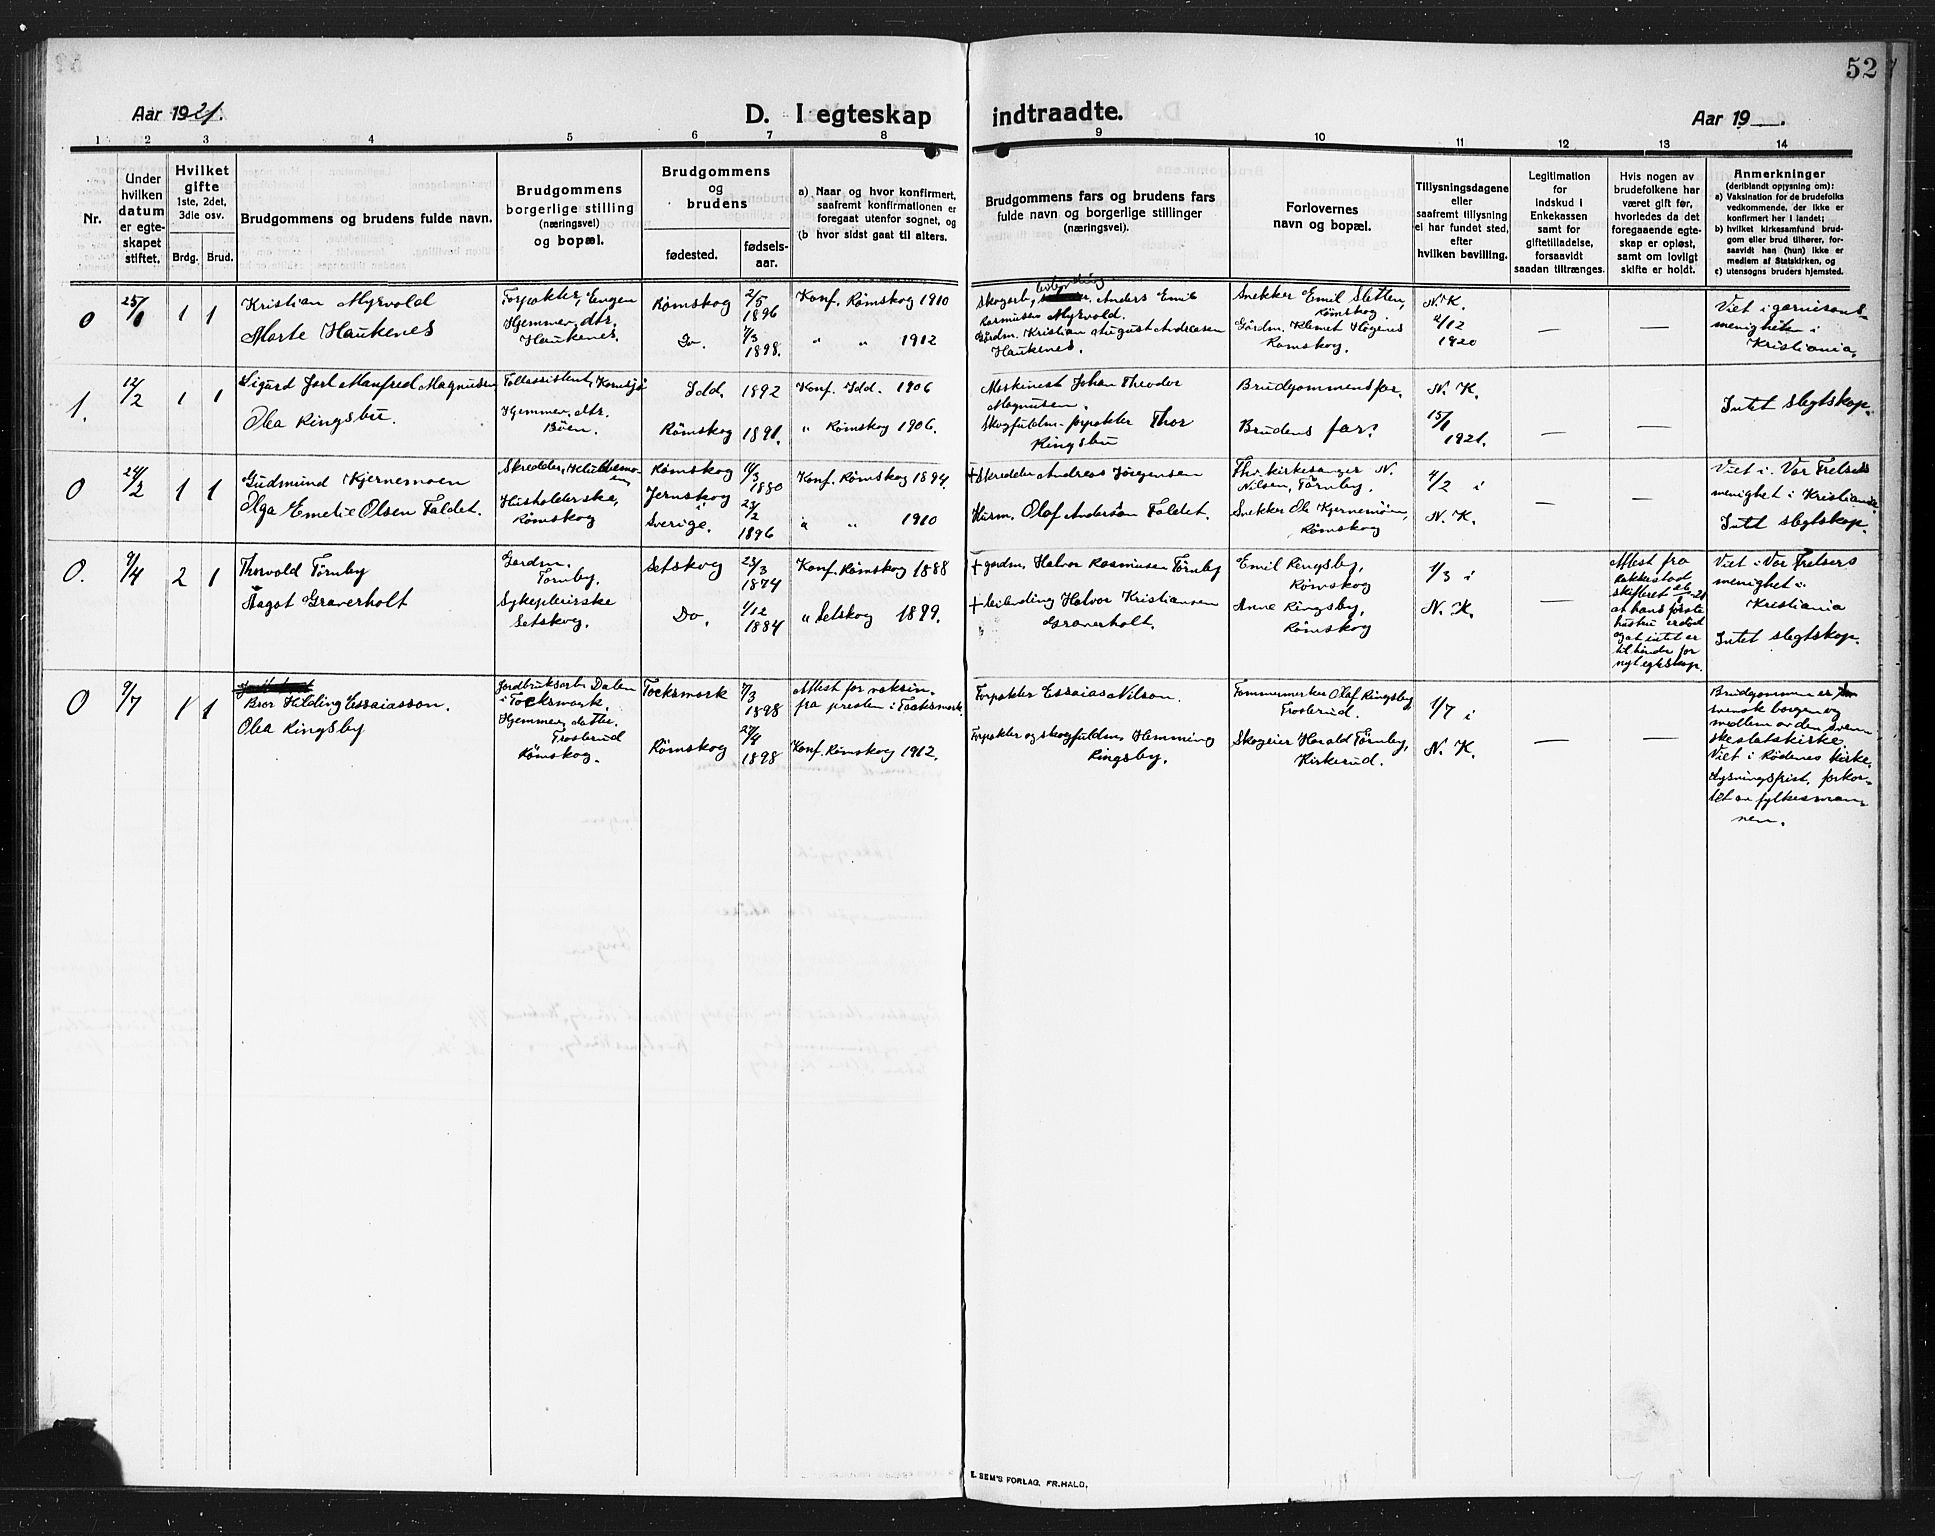 52
Aar 1921.
D. I egteskap indtraadte.
Aar 19 .
1 2 3 4 5 6 7 8 9 10 11 12 13 14
Nr.
Under hvilken datum er egteskapet stiftet.
Hvilket gifte 1ste, 2det, 3die osv.
Brdg. Brud.
Brudgommens og brudens fulde navn.
Brudgommens borgerlige stilling (næringsvei) og bopæl.
Brudgommens og brudens
fødested.
fødselsaar.
a) Naar og hvor konfirmert, saafremt konfirmationen er foregaat utenfor sognet, og
(b hvor sidst gaat til alters.
Brudgommens fars og brudens fars fulde navn og borgerlige stillinger (næringsvei).
Forlovernes navn og bopæl.
Tillysningsdagene eller saafremt tillysning ei har fundet sted, efter hvilken bevilling.
Legitimation for indskud i Enkekassen samt for giftetilladelse, forsaavidt saadan tiltrænges.
Hvis nogen av brudefolkene har været gift før, hvorledes da det foregaaende egteskap er opløst, samt om lovligt skifte er holdt.
Anmerkninger
(deriblandt oplysning om):
a) Vaksination for de brudefolks vedkommende, der ikke er konfirmert her i landet;
b) hvilket kirkesamfund brudgom eller brud tilhører, forsaavidt han (hun) ikke er medlem af Statskirken, og
c) utensogns bruders hjemsted.
0 25/1 1 1
Kristian Myrvold
Marte Haukenes
Forpakter, Engen
Hjemmev. dtr.
Haukenes.
Rømskog 2/5 1896
Do. 4/3 1898.
Konf. Rømskog 1910
" " 1912
Skogarb., Anders Emil
Rasmussen Myrvold.
Gårdm. Kristian August Andreasen
Haukenes.
Snekker Emil Sletten,
Rømskog
Gårdm. Klemet Høgenes
Rømskog.
N. K.
2/12
1920
— —
Viet i garnisons-
menigheten i
Kristiania.
1. 12/2 1 1
Sigurd Jarl Manfred Magnusen
Olea Ringsbu.
Tollassistent, Kornsjø
Hjemmev. dtr.
Bøen.
Idd. 1892
Rømskog 1891.
Konf. Idd. 1906
" Rømskog 1906.
Maskinest Johan Theodor
Magnusen.
Skogfuldm.-forpakter Thor
Ringsbu
Brudgommens far.
Brudens far.
N. K.
15/1
1921.
— —
Intet slegtskap.
0 24/2 1 1
Gudmund Kjernemoen
Olga Emelie Olsen Faldet.
Skredder,
Husholderske,
Rømskog
Rømskog 11/3 1880
Jernskog
Sverige. 23/2 1896
Konf. Rømskog 1894.
" " 1910
+ Skredder Andreas Jørgensen
Husm. Olof Anderson Faldet.
Fhv. kirkesanger N.
Nilsen, Tørnby.
Snekker Ole Kjernemoen,
Rømskog
4/2 i
N. K.
— —
Viet i Vor Frelsers
menighet i Kristiania
Intet slegtskap.
0. 9/4 2 1
Thorvald Tørnby
Aagot Graverholt
Gardm.
Tørnby.
Sykepleierske
Setskog.
Setskog 23/3 1874
Do. 1/12 1884
Konf. Rømskog 1888
" Setskog 1899.
+ gardm. Halvor Rasmusen Tørnby
+ leilending Halvor Kristiansen
" Graverholt.
Emil Ringsby,
Rømskog
Anne Ringsby,
Rømskog
1/3 i
N. K.
—
Attest fra
Rakkestad
skifteret
at hans første
hustru er død
og at intet er
til hinder for
nyt egteskap.
Viet i Vor Frelsers
menighet i
Kristiania
Intet slegtskap.
0 9/7 1 1
Bror Hilding Essaiasson.
Olea Ringsby
Jordbruksarb. Dalen
i Tocksmark.
Hjemmev. datter.
Trosterud
Rømskog.
Tocksmark 7/3 1898
Rømskog 27/4 1898
Attest for vaksin.
fra presten i Tocksmark.
Konf. Rømskog 1912.
Forpakter Essaias Nilson.
Forpakter og skogfuldm. Hemming
Ringsby.
Tømmermerker Olaf Ringsby
Trosterud.
Skogeier Harald Tørnby,
Kirkerud.
1/7 i
N. K.
— —
Brudgommen er
svensk borger og
medlem av den sven-
ske statskirke
Viet i Rødenes kirke.
Lysningsfrist. forkor-
tet av fylkesman-
nen.
E. SEM'S FORLAG, FR.HALD.